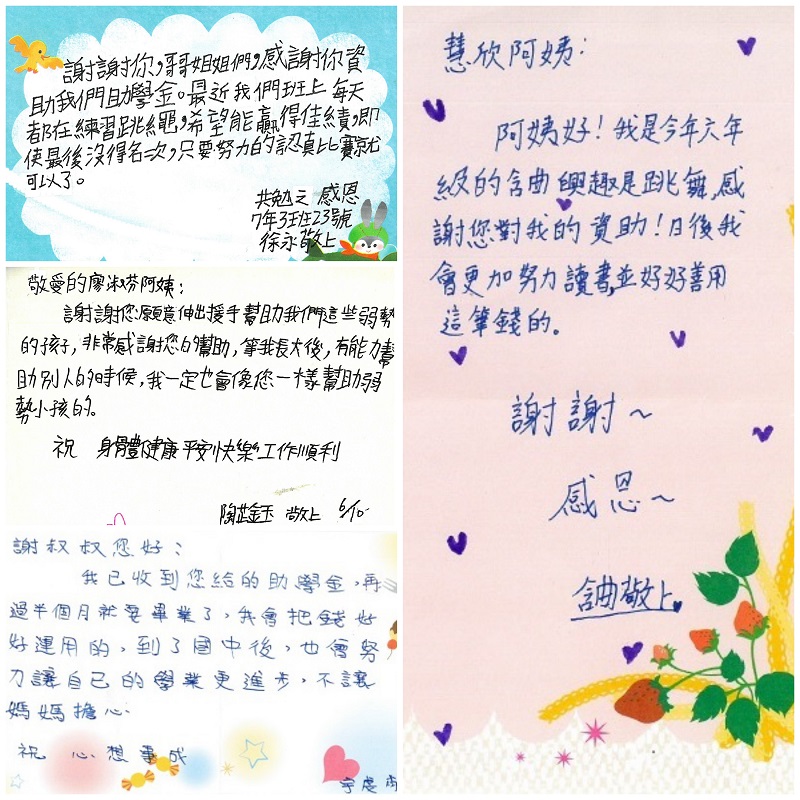 謝謝你,哥哥姐姐們,感謝你資
助我們助學金。最近我們班上每天
都在練習跳繩,希望能贏得佳績,即
使最後沒得名次,只要努力的認真比賽就
可以了。
共勉之 感恩
7年3班23號
徐永敬上
敬愛的廖淑芬阿姨:
謝謝您願意伸出援手幫助我們這些弱勢
的孩子,非常感謝您的幫助,等我長大後,有能力幫
助別人的時候,我一定也會像您一樣幫助弱
勢小孩的。
祝 身體健康 平安快樂 工作順利
敬上 6/10
謝叔叔您好:
我已收到您給的助學金,再
過半個月就要畢業了,我會把錢好
好運用的,到了國中後,也會努
力讓自己的學業更進步,不讓
媽媽擔心
祝 心想事成
慧欣阿姨:
阿姨好!我是今年六年
級的 興趣是跳舞,感
謝您對我的資助!日後我
會更加努力讀書,並好好善用
這筆錢的。
謝謝~
感恩~
敬上